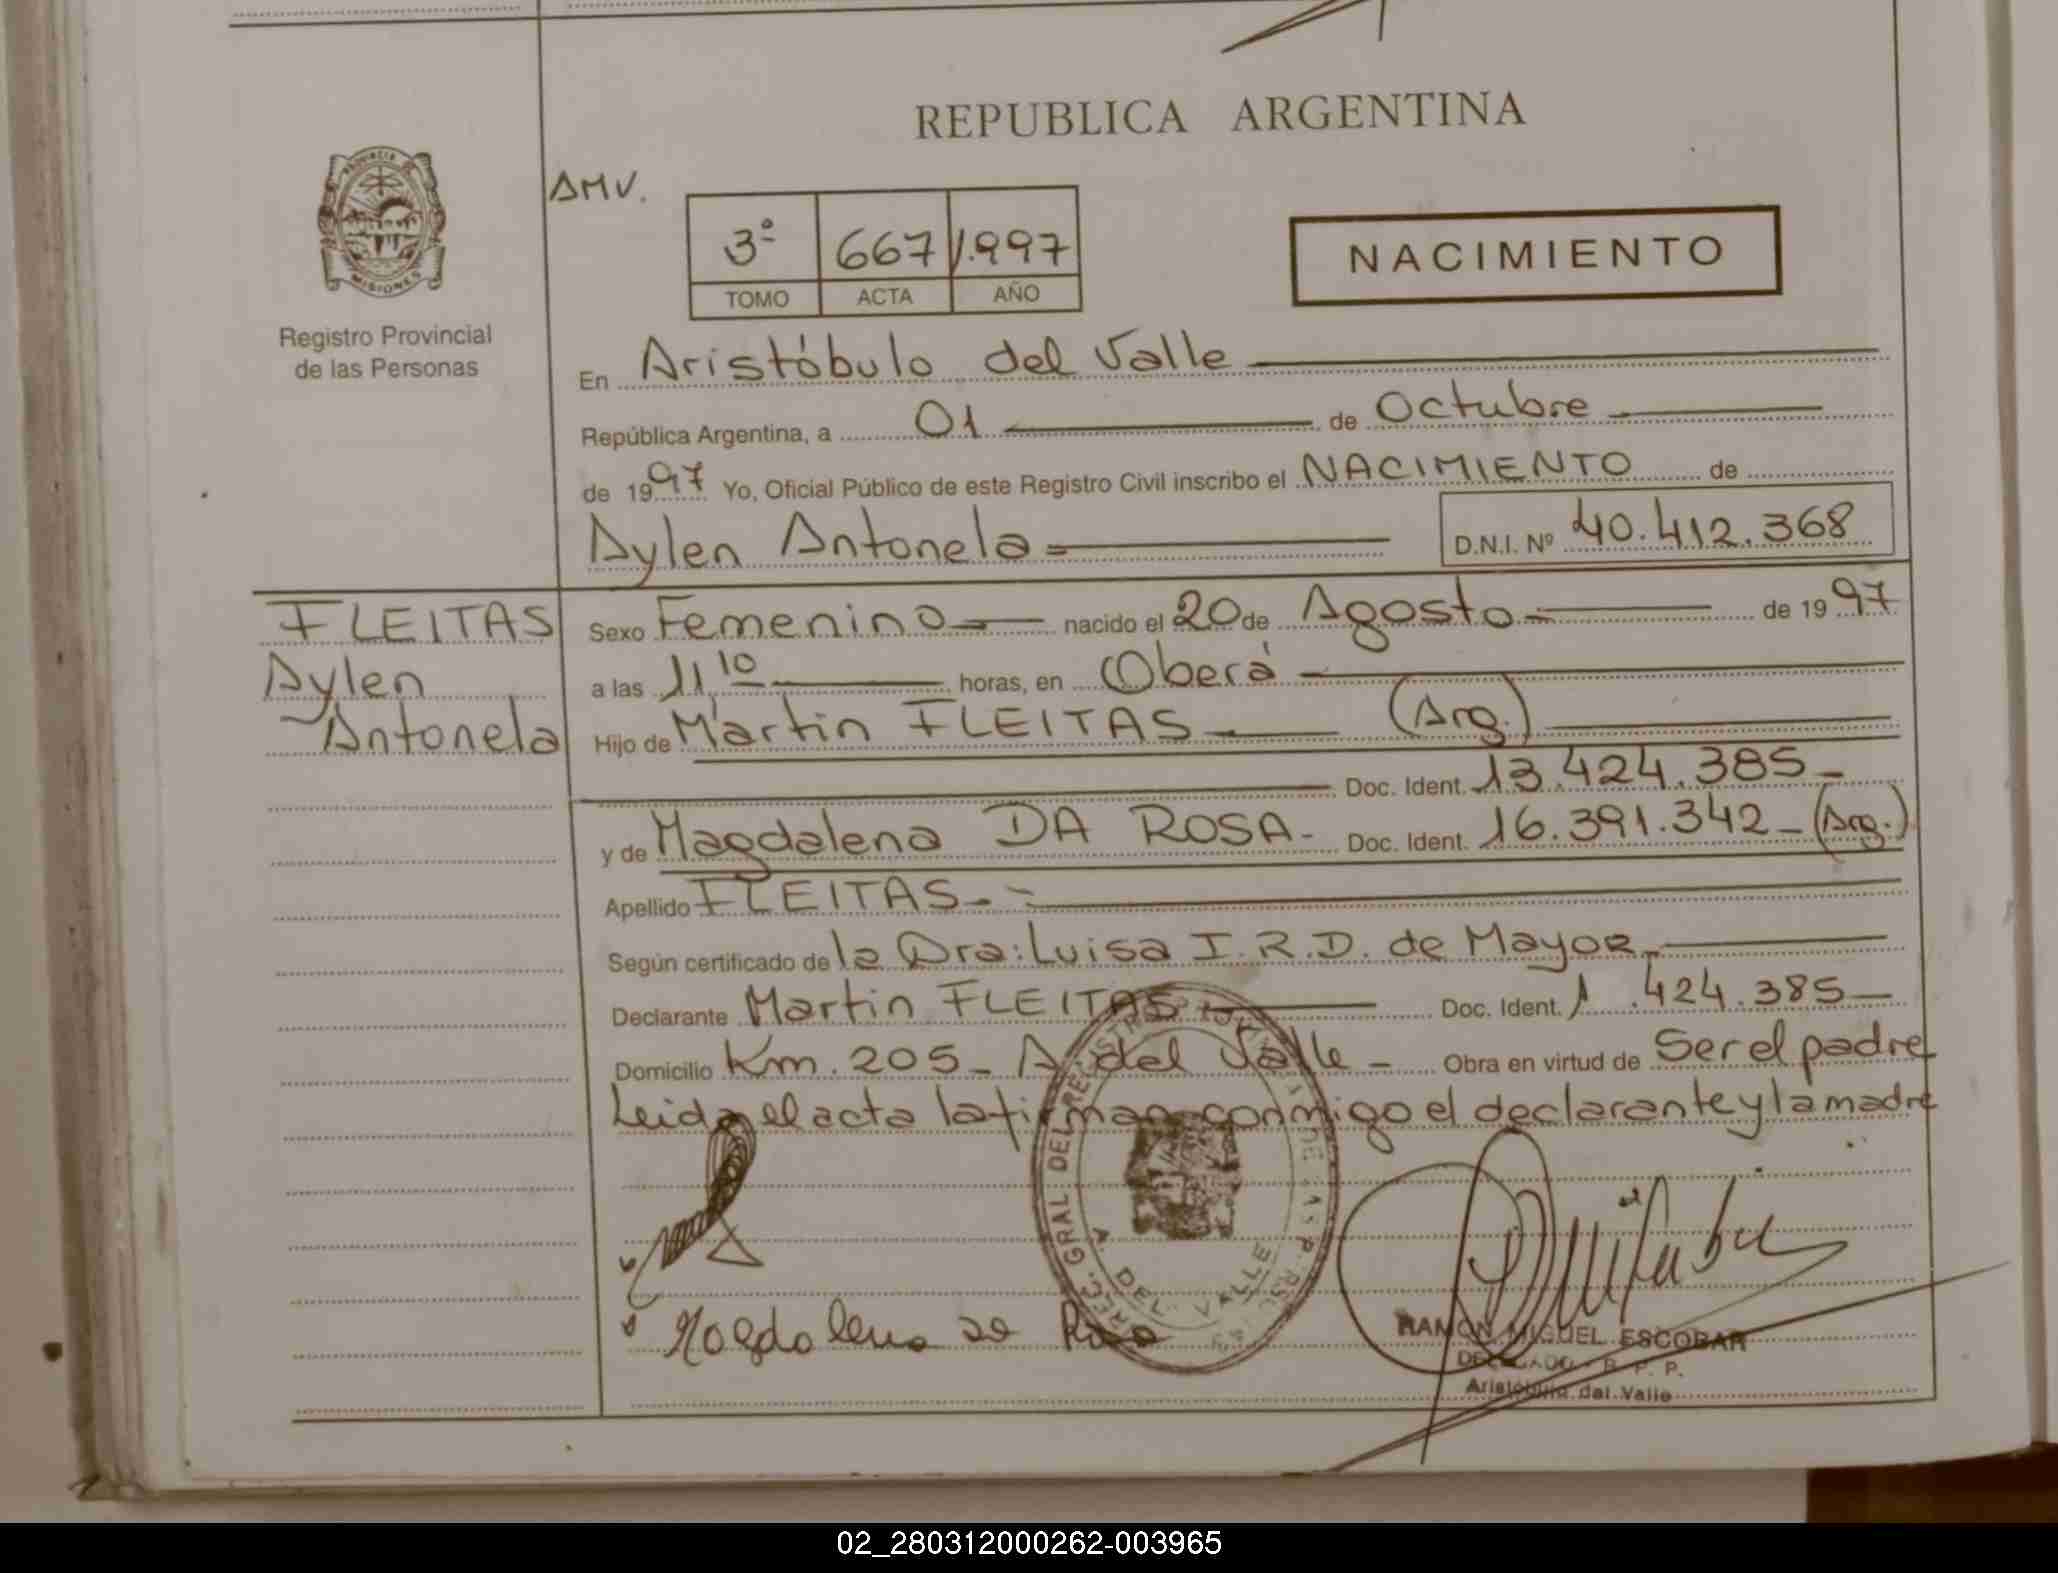 REPUBLICA ARGENTINA
PROVINCIA DE
MISIONES
Registro Provincial
de las Personas
AMV.
3º 667 1.997
TOMO ACTA AÑO
NACIMIENTO
En Aristóbulo del Valle
República Argentina, a 01 de Octubre
de 1997 Yo, Oficial Público de este Registro Civil inscribo el NACIMIENTO de
Aylen Antonela D.N.I. Nº 40.412.368
FLEITAS
Aylen
Antonela
Sexo Femenino nacido el 20 de Agosto de 1997
a las 11,10 horas, en Oberá
Hijo de Martin FLEITAS (Arg.)
Doc. Ident. 13.424.385
y de Magdalena DA ROSA- Doc. Ident. 16.391.342 (Arg.)
Apellido FLEITAS
Según certificado de la Dra: Luisa I.R.D. de Mayor
Declarante Martin FLEITAS Doc. Ident. 1 .424.385
Domicilio Km. 205 - A. del Valle - Obra en virtud de Ser el padre
Leida el acta la firman conmigo el declarante y la madre
GRAL DEL REGISTRO
A. DEL VALLE
RAMON MIGUEL ESCOBAR
DELEGADO - R. P. P.
Aristóbulo del Valle
02_280312000262-003965